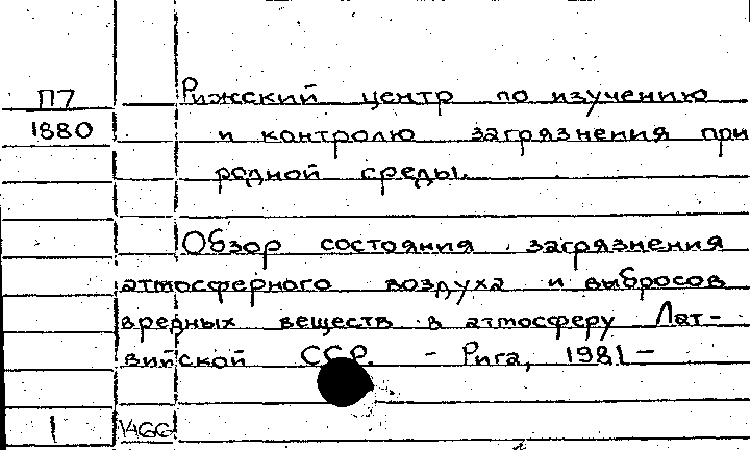 П7 Рижский центр по изучению
1880 и контролю загрязнения при
родной среды.
Обзор состояния загрязнения
атмосферного воздуха и выбросов
вредных веществ в атмосферу Лат-
вийской ССР. - Рига, 1981 -
1 1466